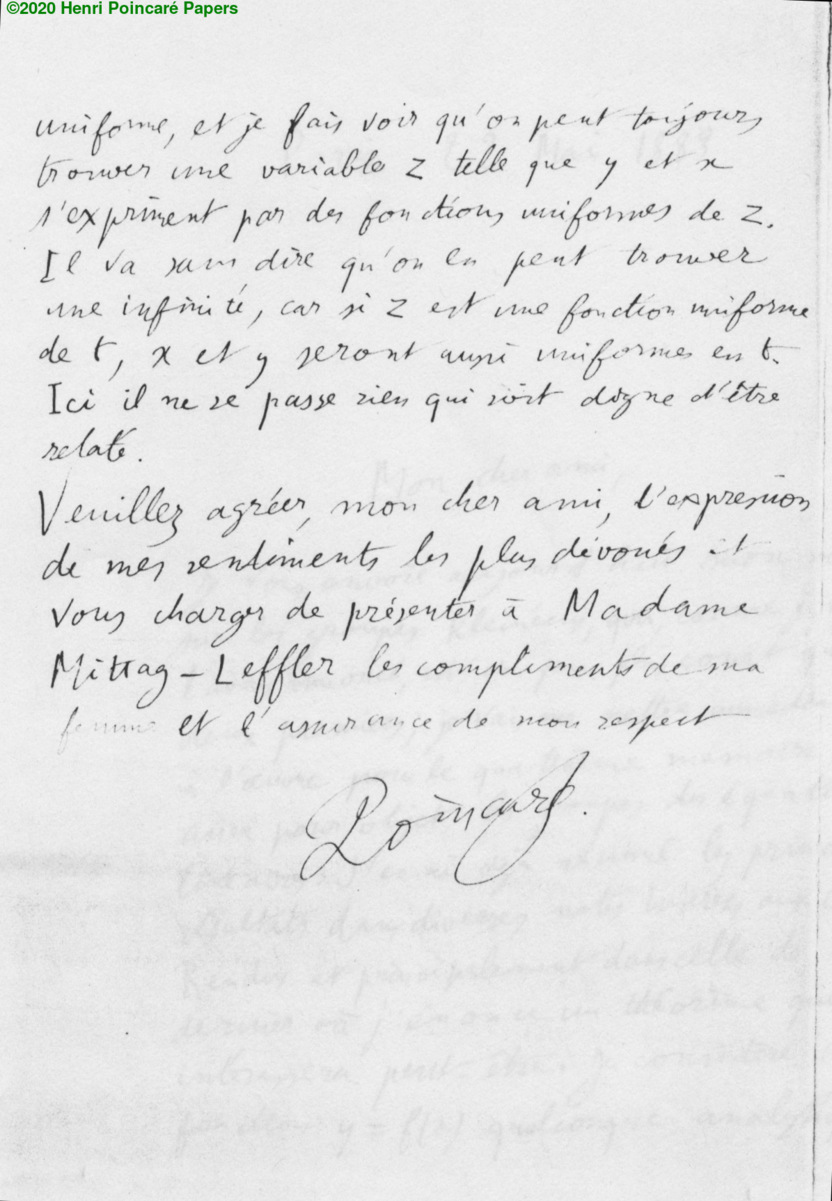 ©2020 Henri Poincaré Papers
uniforme, et je fais voir qu'on peut toujours
trouver une variable z telle que y et x
s'expriment par des fonctions uniformes de z.
Il va sans dire qu'on en peut trouver
une infinité, car si z est une fonction uniforme
de t, x et y seront aussi uniformes en t.
Ici il ne se passe rien qui soit digne d'être
relaté.
Veuillez agréer, mon cher ami, l'expression
de mes sentiments les plus dévoués et
vous charger de présenter à Madame
Mittag-Leffler les compliments de ma
femme et l'assurance de mon respect
Poincaré.